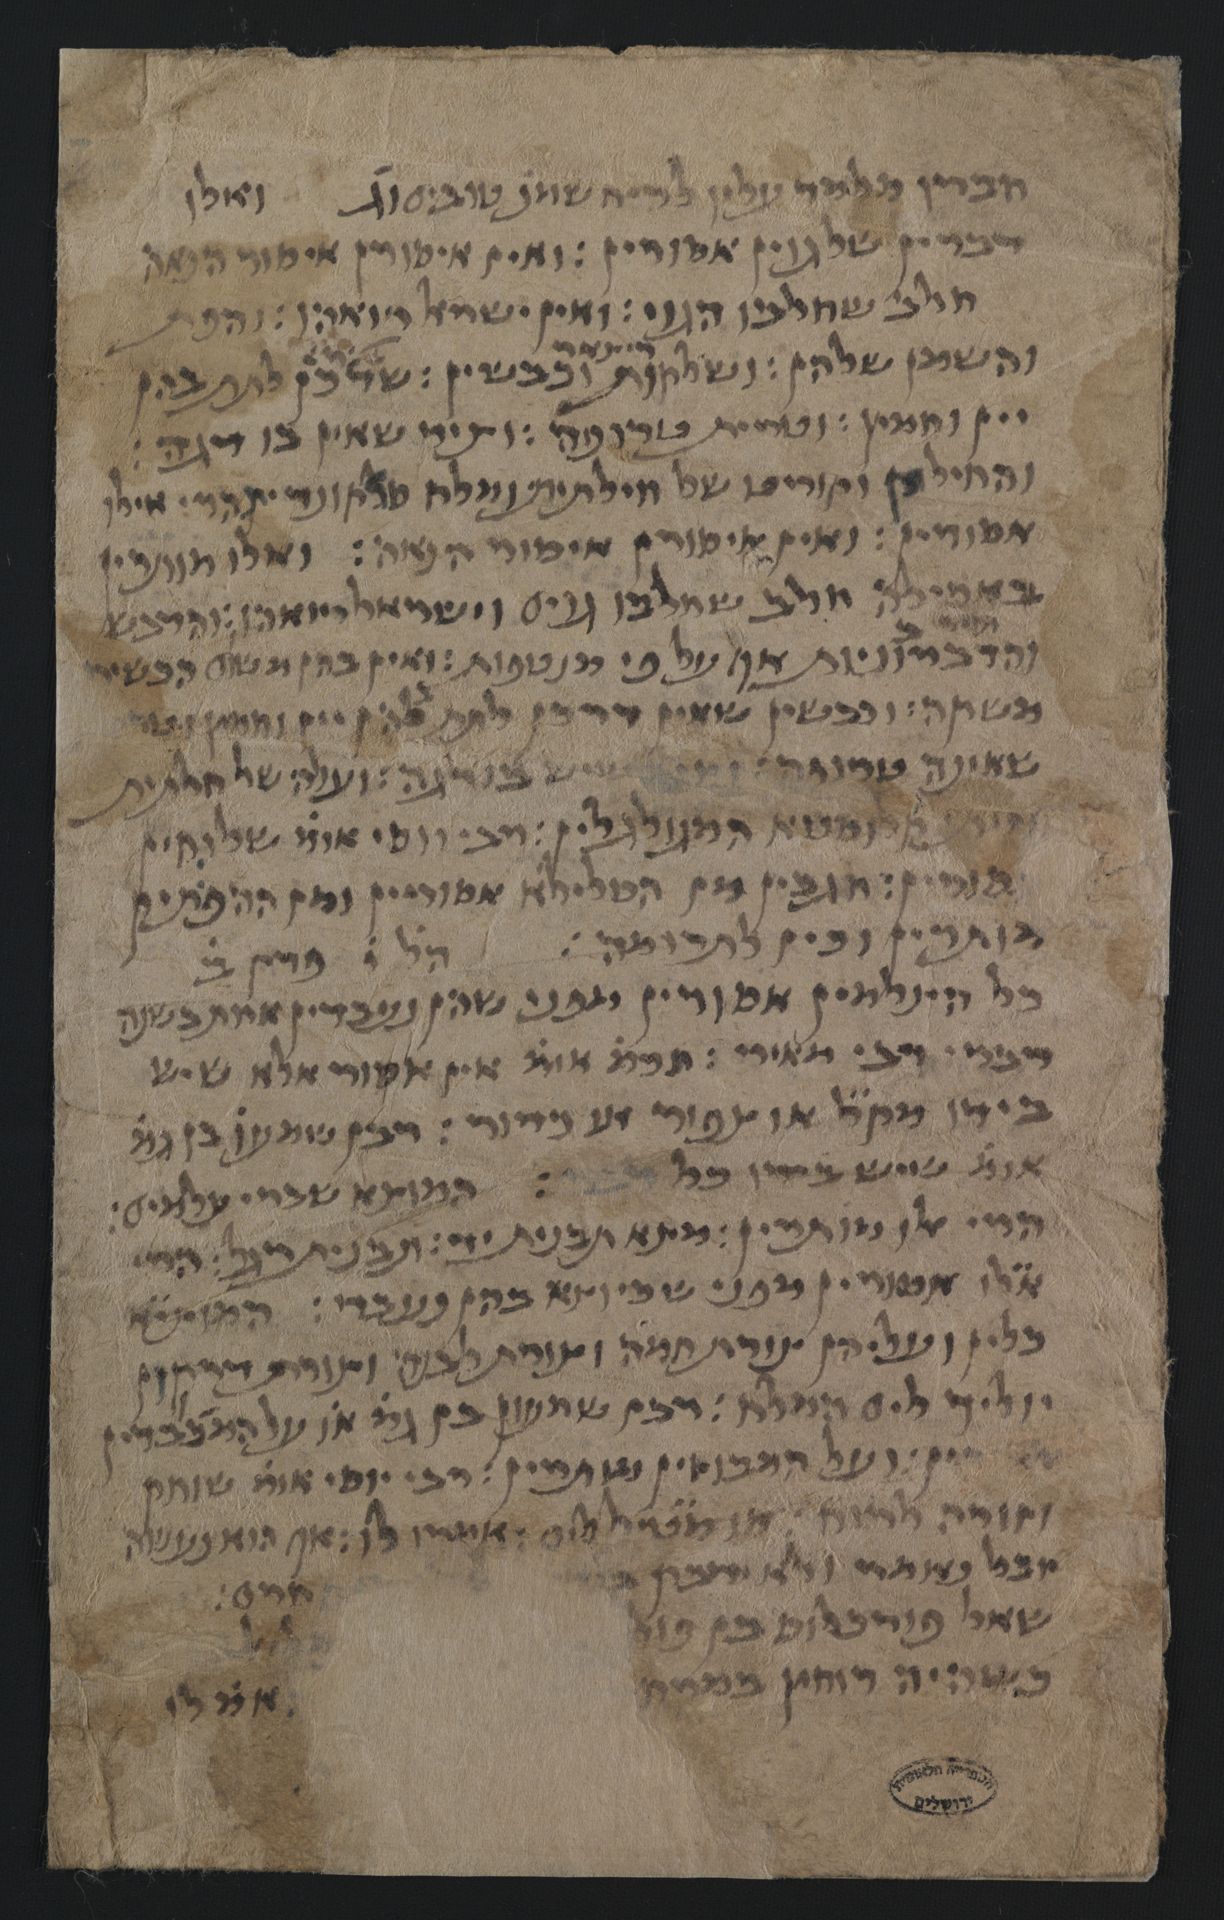 חברין מלמד עלין לריח שמנ טוביס וג ואלו
דברים שלגוים אסורים : ואין איסורן איסור הנאה
חלב שחלבו הגוי : ואין ישראל רואהו : והפת
והשמן שלהן : ושלקות וכבשין : שדרכן לתת בהן
יין וחמץ : וטרית טרופה : וציר שאין בו דגה :
והחילק וקורט של חילתית ומלח סלקונדית הרי אילו
אסורין : ואין איסורן איסור הנאה : ואלו מותרין
באכילה חלב שחלבו גויס וישראל רואהו : והדבש
והדבדוניות אף על פי מנטפות : ואין בהן משום הכשיר
משקה : וכבשין שאין דרכן לתת להן יין וחמץ
שאינה טרופה : יש בו דגה : ועלה של חלתית
גלוסקא המגולגלין : רבי יוסי אומ שלחין
אסורין : חגבין מן הסלילא אסורין ומן ההפתיק
מותרין וכין לתרומה : הל פרק ג
כל הצלמים אסורין מפני שהן נעבדין אחת בשנה
דברי רבי מאיר : חכמ אומ אין אסור אלא שיש
בידו מקל או צפור או כדור : רבן שמעון בן גמ
אומ שיש בידו כל דבר : המוצא שברי צלמיס :
הרי אלו מותרין : מצא תבנית יד : תבנית רגל : הרי
אילו אסורין מפני שכיוצא בהן נעבד : המוצא
כלין ועליהן צורת חמה וצורת לבנה וצורת דרקון
יוליך ליס המלח : רבן שמעון בן גמ או על המכבדין
אסורין : ועל המבוזין מותרין : רבי יוסי אומ שוחק
וזורה לרוח : או מטיל ליס : אמרו לו : אף הוא נעשה
זבל שנאמר ולא ידבק חרס :
שאל פורכלוס בן פול
כשהיה רוחץ במרח : אמ לו
הספריה הלאומית
ירושלים